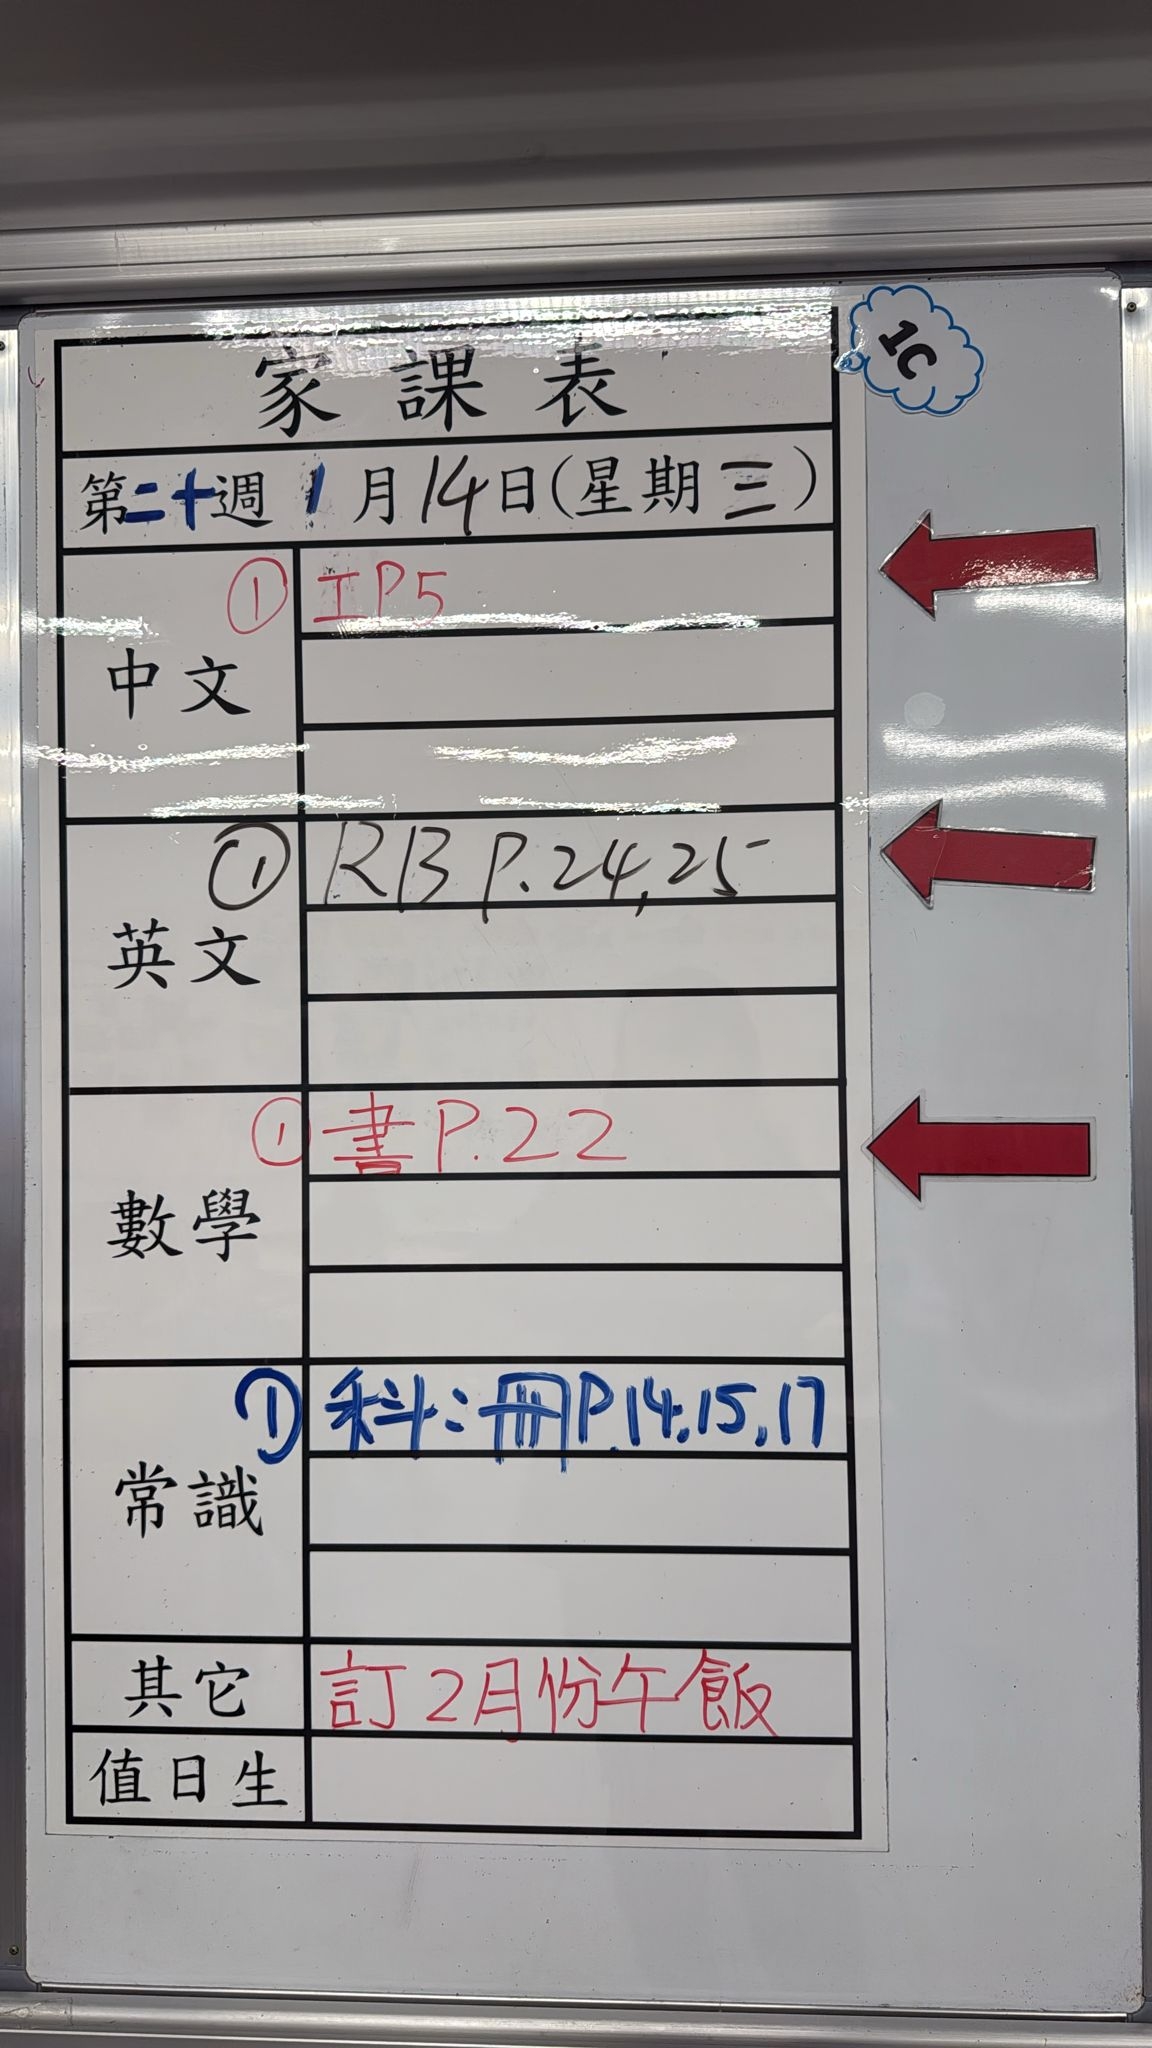 家課表
1C
第二十週 1月14日(星期三)
中文
① 工P5
英文
① RB P.24,25
數學
① 書P.22
常識
① 科:冊P.14,15,17
其它
訂2月份午飯
值日生